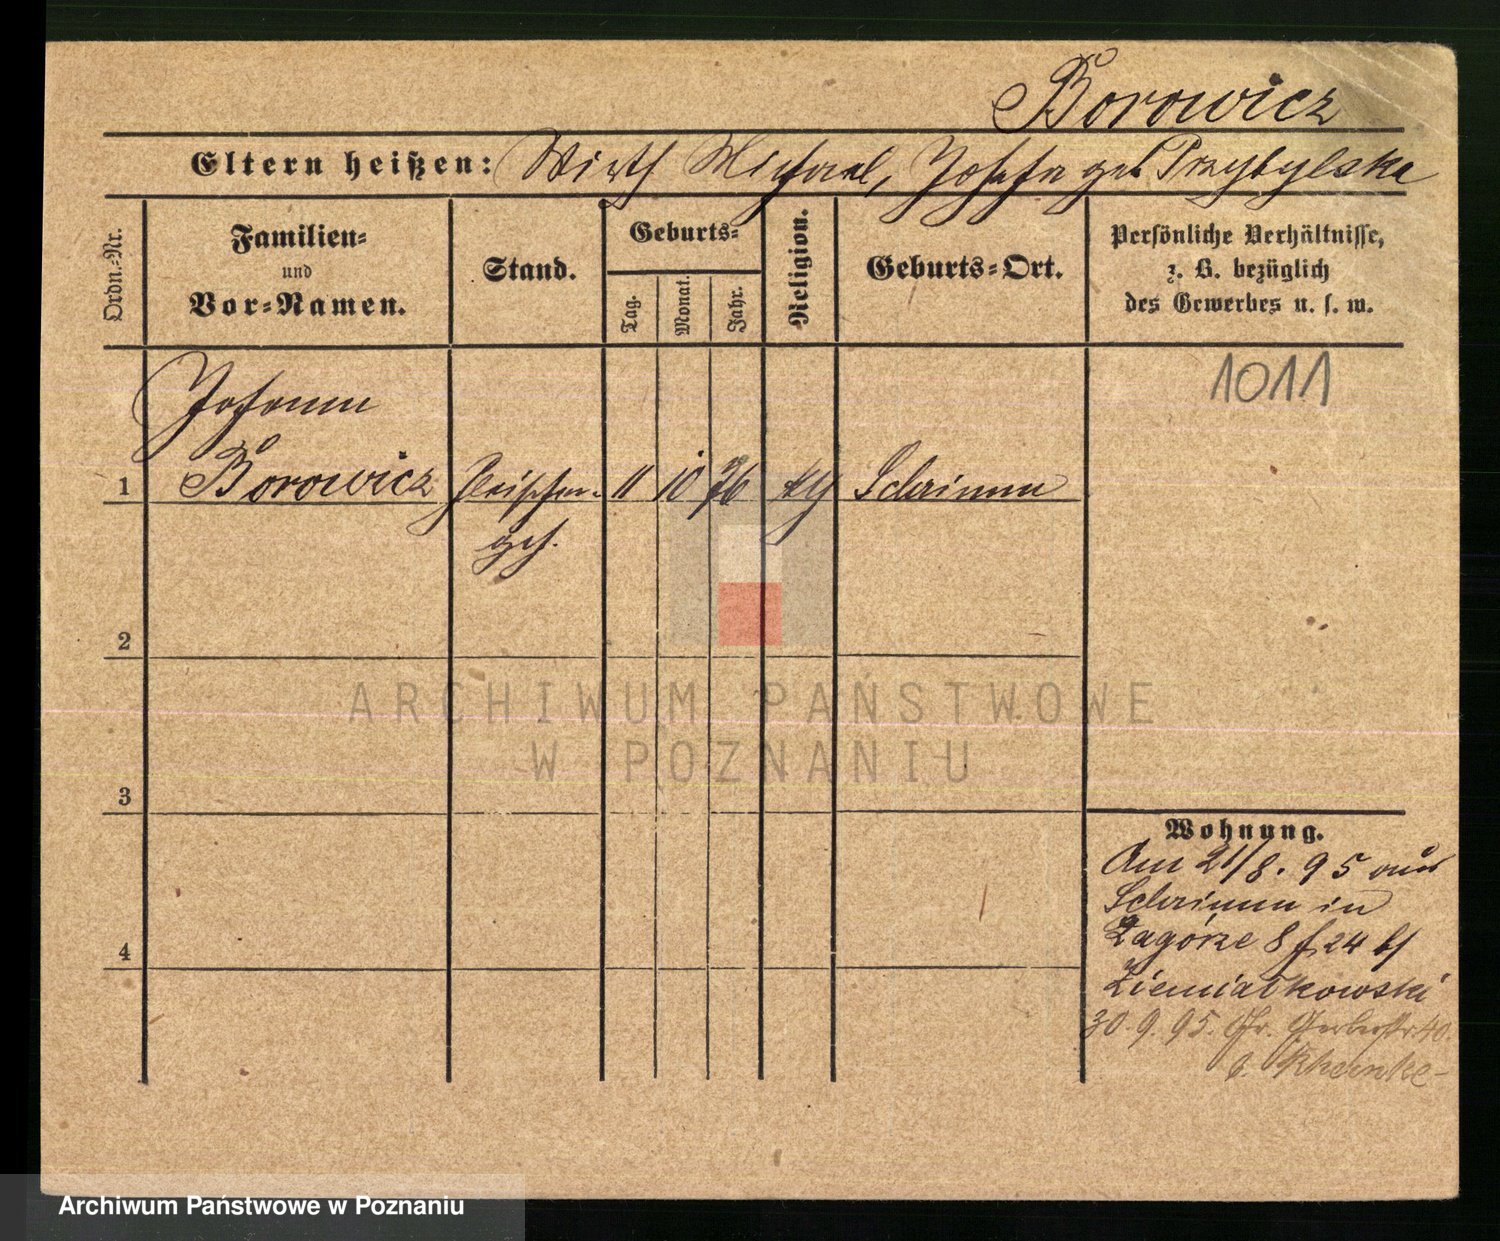 Borowicz
Eltern heißen: Wirth Michael, Josefa geb Przybylska
Ordn.-Nr.
Familien-
und
Vor-Namen.
Stand.
Geburts-
Tag.
Monat.
Jahr.
Religion.
Geburts-Ort.
Persönliche Verhältnisse,
z. B. bezüglich
des Gewerbes u. s. w.
1011
Johann
1 Borowicz Fleischer- 11 10 76 kth Schrimm
ges.
2
3
4
Wohnung.
Am 21/8. 95 aus
Schrimm in
Zagórze 8 24 b/
Ziemiatkowski
30.9.95. Gr. Gerberstr. 40.
ARCHIWUM PAŃSTWOWE
W POZNANIU
Archiwum Państwowe w Poznaniu